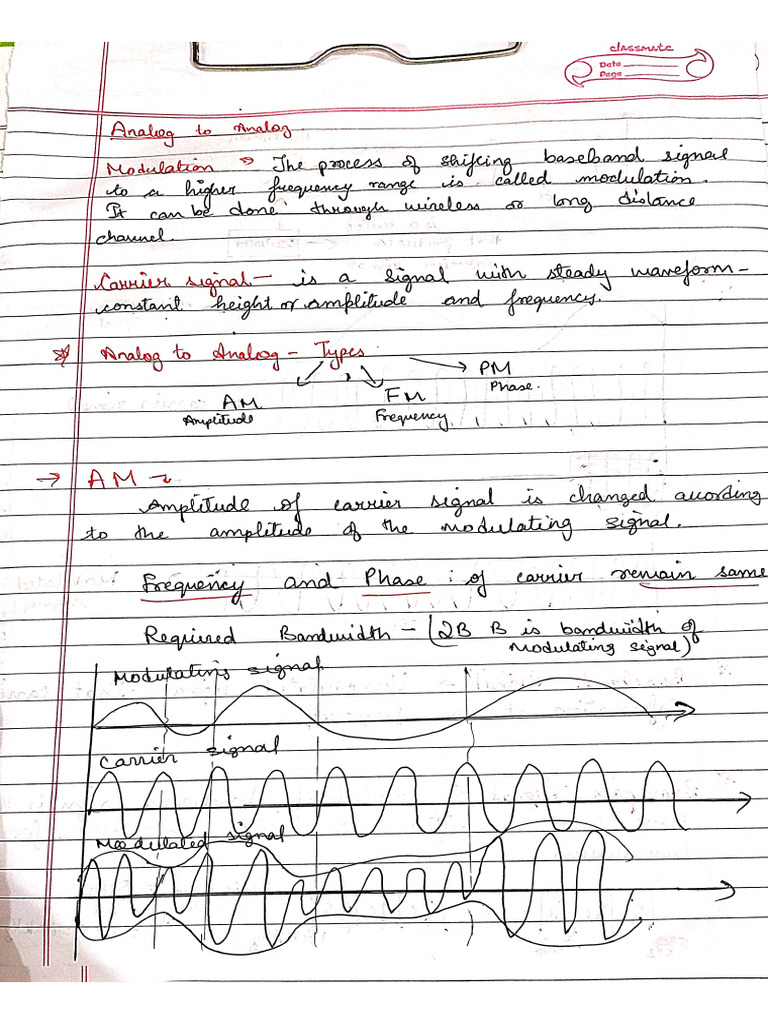 classmate
Date
Page
Analog to Analog.
Modulation → The process of shifting baseband signal
to a higher frequency range is called modulation.
It can be done through wireless or long distance
channel.
Carrier signal - is a signal with steady waveform -
constant height or amplitude and frequency.
Analog to Analog - Types
PM
Phase.
AM
FM
Amplitude
Frequency
→ AM →
Amplitude of carrier signal is changed according
to the amplitude of the modulating signal.
Frequency and Phase of carrier remain same
Required Bandwidth - (2B B is bandwidth of
Modulating signal)
Modulating signal
Carrier signal
Modulated signal